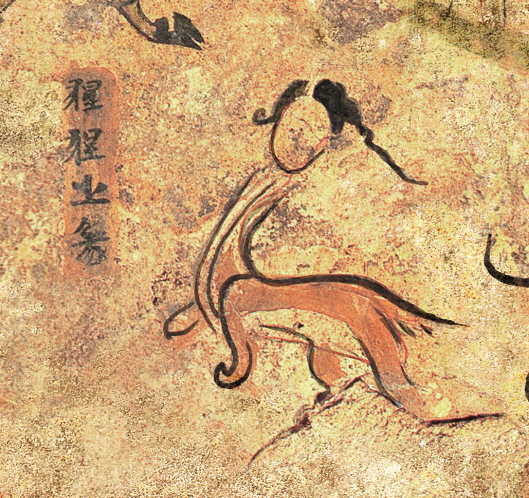 猩猩之象